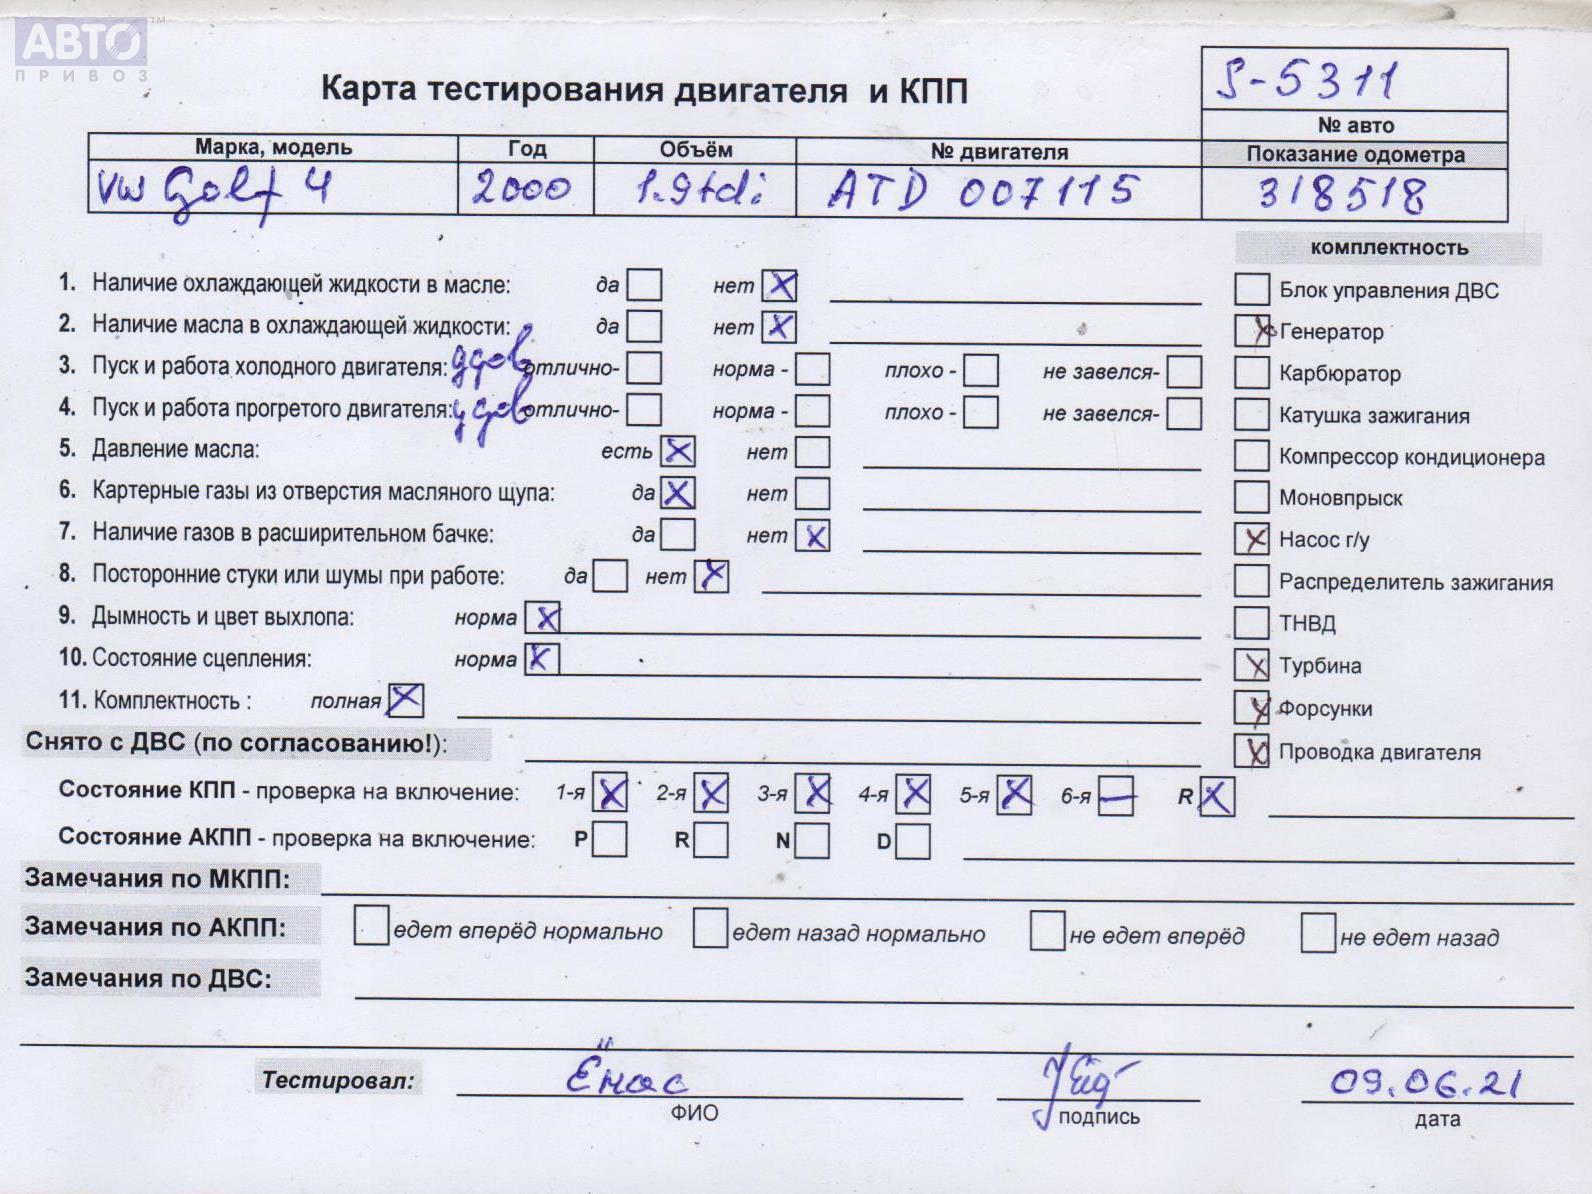 АВТО ™
ПРИВОЗ
Карта тестирования двигателя и КПП
S-5311
№ авто
Марка, модель Год Объём № двигателя Показание одометра
VW Golf 4 2000 1.9tdi ATD 007115 318518
комплектность
1. Наличие охлаждающей жидкости в масле: да нет X
Блок управления ДВС
2. Наличие масла в охлаждающей жидкости: да нет X
X Генератор
3. Пуск и работа холодного двигателя: удов отлично- норма - плохо - не завелся-
Карбюратор
4. Пуск и работа прогретого двигателя: удов отлично- норма - плохо - не завелся-
Катушка зажигания
5. Давление масла: есть X нет
Компрессор кондиционера
6. Картерные газы из отверстия масляного щупа: да X нет
Моновпрыск
7. Наличие газов в расширительном бачке: да нет X
X Насос г/у
8. Посторонние стуки или шумы при работе: да нет X
Распределитель зажигания
9. Дымность и цвет выхлопа: норма X
ТНВД
10. Состояние сцепления: норма X
X Турбина
11. Комплектность : полная X
X Форсунки
Снято с ДВС (по согласованию!):
X Проводка двигателя
Состояние КПП - проверка на включение: 1-я X 2-я X 3-я X 4-я X 5-я X 6-я — R X
Состояние АКПП - проверка на включение: P R N D
Замечания по МКПП:
Замечания по АКПП: едет вперёд нормально едет назад нормально не едет вперёд не едет назад
Замечания по ДВС:
Тестировал: Ёнас 09.06.21
ФИО подпись дата